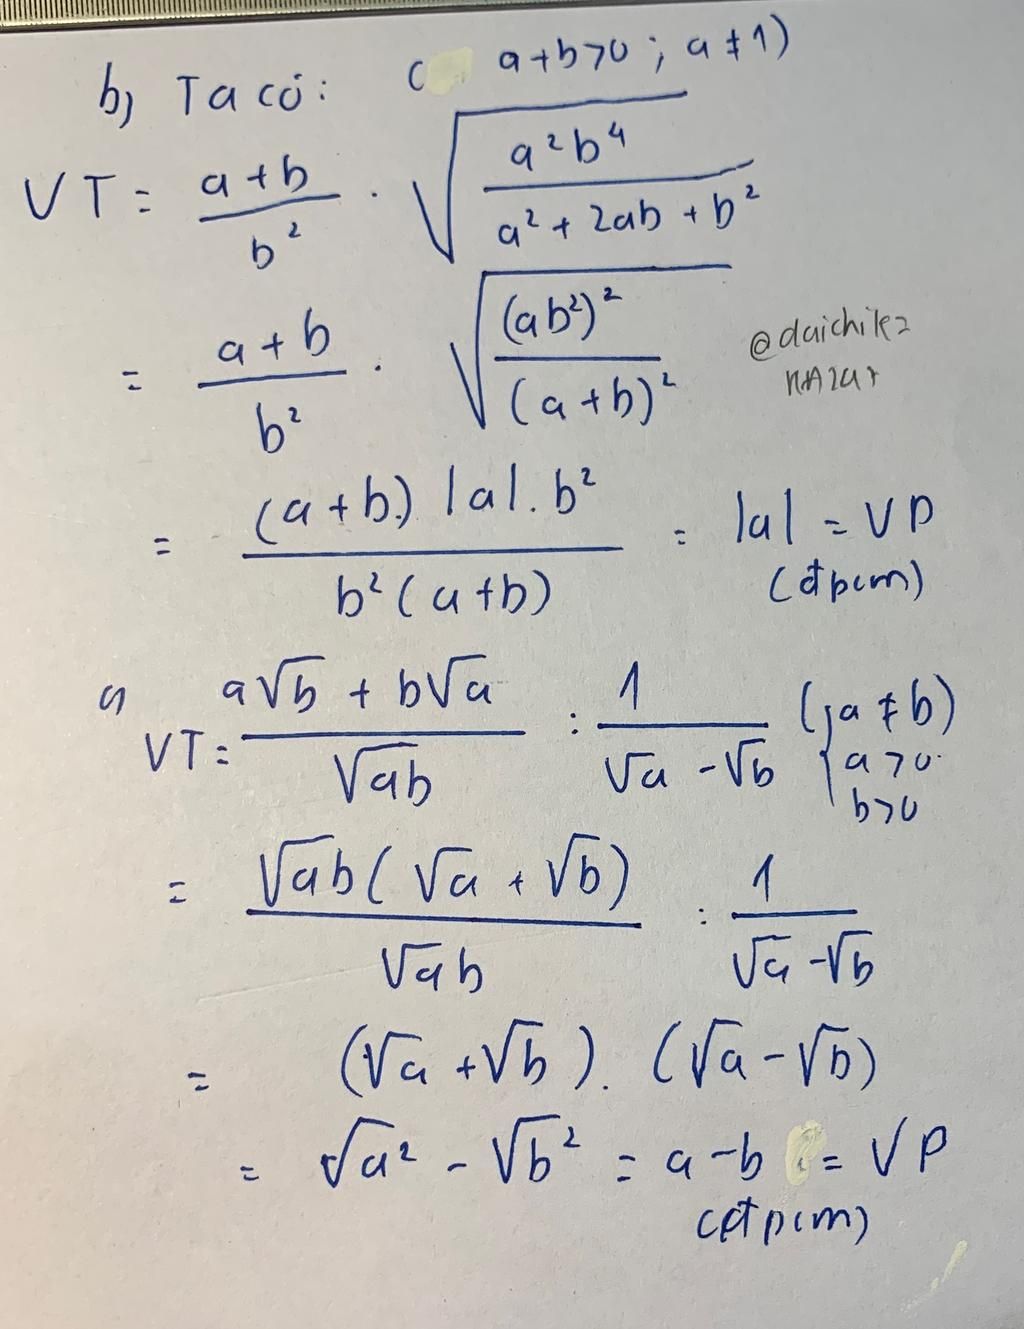 b) Ta có: ( a+b>0 ; a ≠ 1)
VT = (a+b)/b² . √(a²b⁴/(a² + 2ab + b²))
= (a+b)/b² . √((ab²)²/(a+b)²)
= ((a+b) |a|. b²)/(b²(a+b)) = |a| = VP
(đpcm)
VT = (a√b + b√a)/√ab : 1/(√a - √b) ( a ≠ b)
a > 0
b > 0
= (√ab(√a + √b))/√ab : 1/(√a - √b)
= (√a + √b). (√a - √b)
= √a² - √b² = a - b = VP
(đpcm)